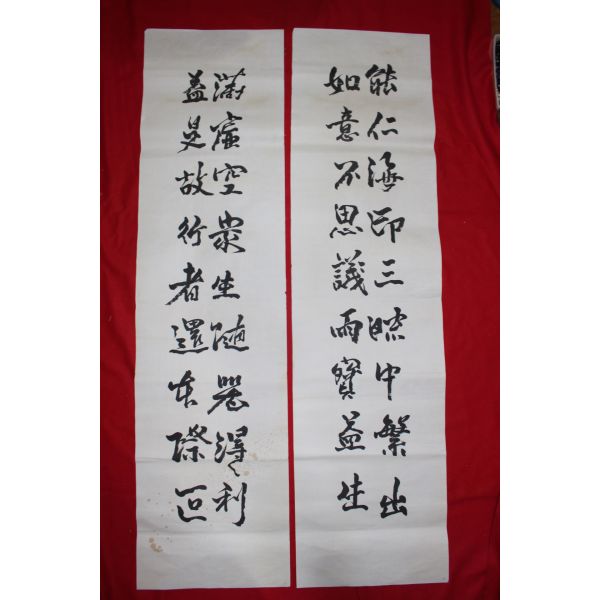 能仁海印三昧中繁出
如意不思議雨寶益生
滿虛空衆生隨器得利
益是故行者還本際叵